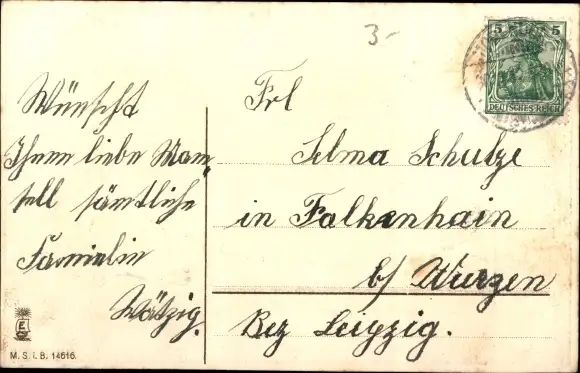 3-
5 5
DEUTSCHES REICH
Wünscht
Ihnen liebe Mam
sell sämtliche
Familie
Wätzig.
Frl
Selma Schulze
in Falkenhain
b/ Wurzen
Bez Leipzig.
E
M. S. i. B. 14616.